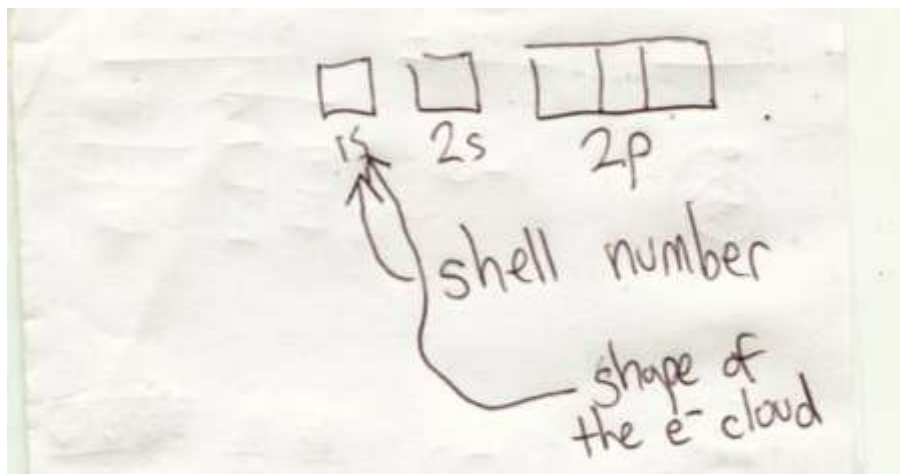 1s 2s 2p
shell number
shape of
the e⁻ cloud